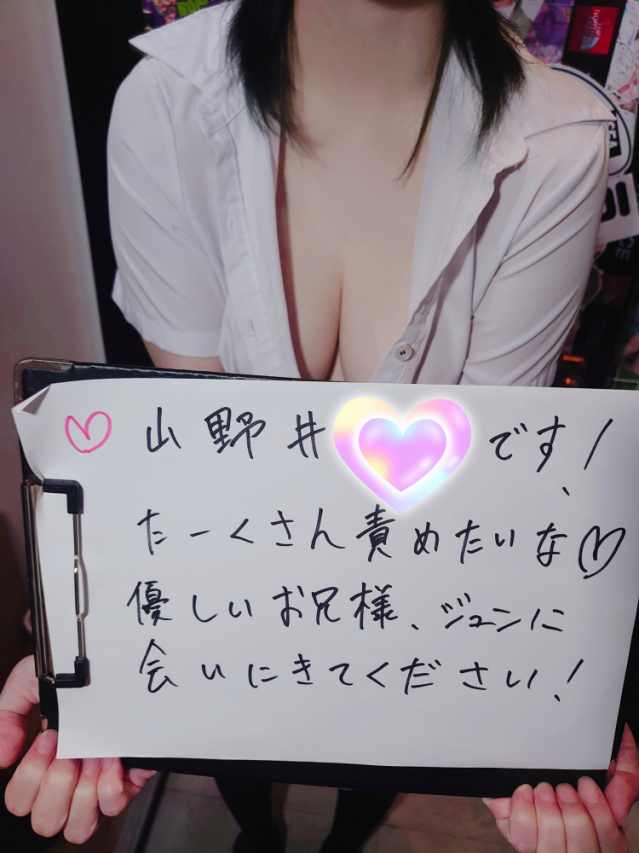 ♡山野井です!
たーくさん責めたいな♡
優しいお兄様、ジュンに
会いにきてください!